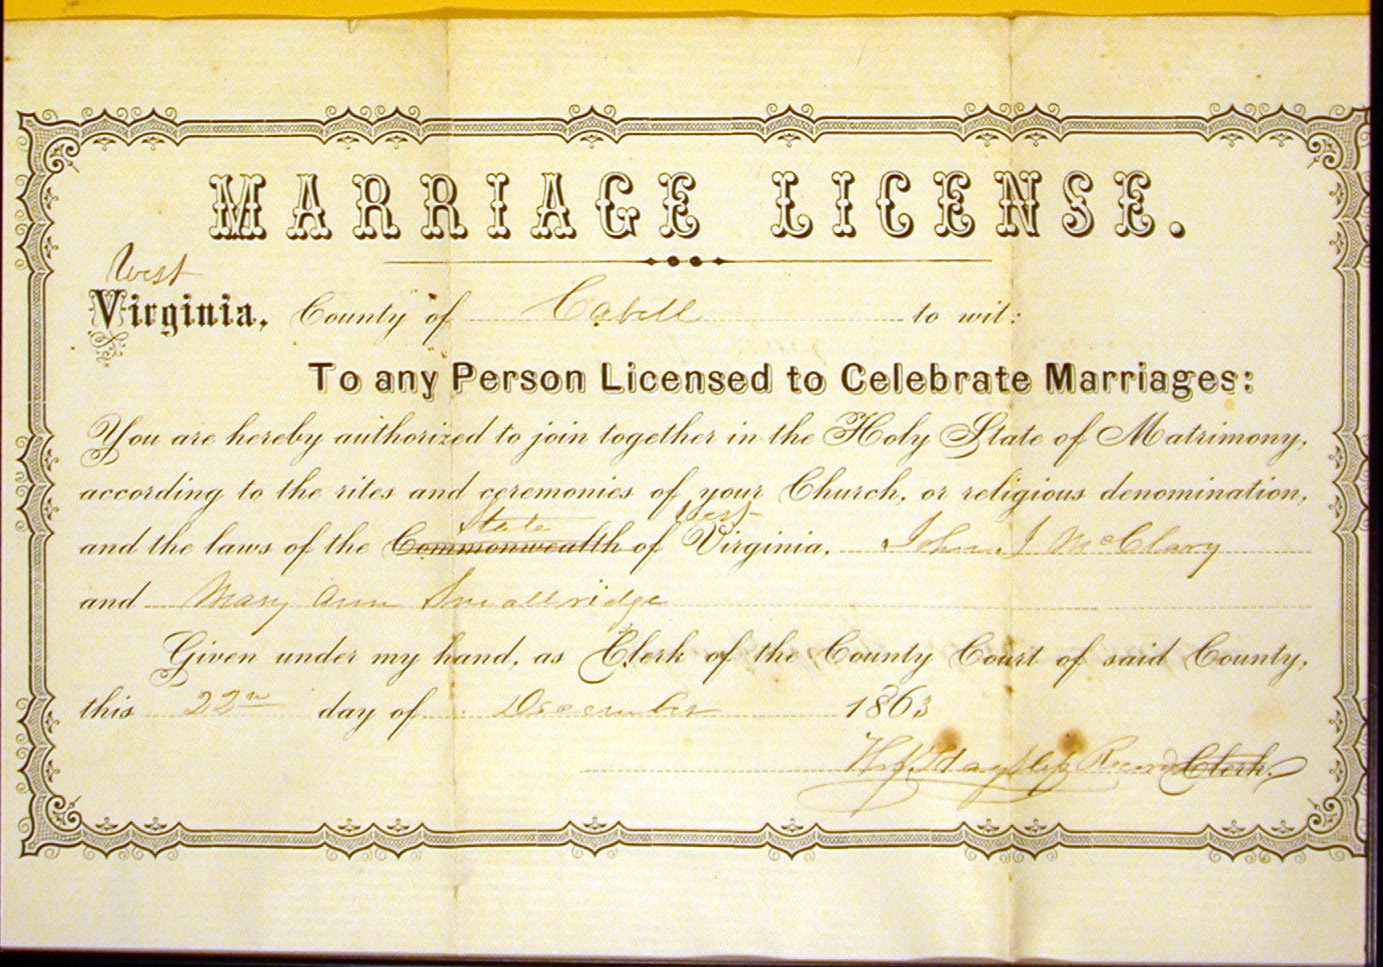 MARRIAGE LICENSE.
West
Virginia, County of Cabell to wit:
To any Person Licensed to Celebrate Marriages:
You are hereby authorized to join together in the Holy State of Matrimony,
according to the rites and ceremonies of your Church, or religious denomination,
State West
and the laws of the Commonwealth of Virginia, John J McClary
and Mary Ann Smallridge
Given under my hand, as Clerk of the County Court of said County,
this 22nd day of December 1863
Clerk.